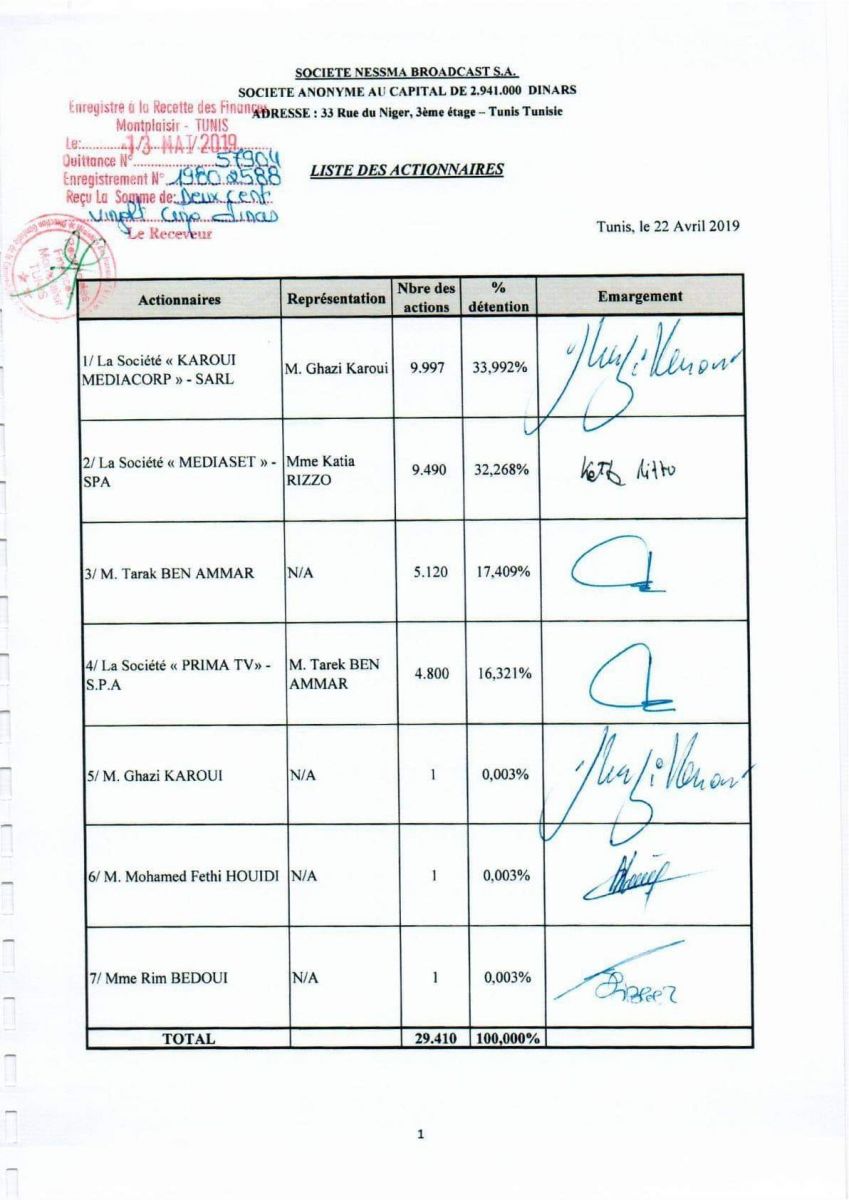 SOCIETE NESSMA BROADCAST S.A.
SOCIETE ANONYME AU CAPITAL DE 2.941.000 DINARS
ADRESSE : 33 Rue du Niger, 3ème étage – Tunis Tunisie
Enregistre à la Recette des Finances
Montplaisir - TUNIS
Le: 13 MAI 2019
Quittance N° 57904
Enregistrement N° 19802588
Reçu La Somme de: Deux cent
vingt cinq dinars
Le Receveur
LISTE DES ACTIONNAIRES
Tunis, le 22 Avril 2019
Actionnaires Représentation Nbre des actions % détention Emargement
1/ La Société « KAROUI
MEDIACORP » - SARL
M. Ghazi Karoui 9.997 33,992%
2/ La Société « MEDIASET » -
SPA
Mme Katia
RIZZO
9.490 32,268%
3/ M. Tarak BEN AMMAR N/A 5.120 17,409%
4/ La Société « PRIMA TV» -
S.P.A
M. Tarek BEN
AMMAR
4.800 16,321%
5/ M. Ghazi KAROUI N/A 1 0,003%
6/ M. Mohamed Fethi HOUIDI N/A 1 0,003%
7/ Mme Rim BEDOUI N/A 1 0,003%
TOTAL 29.410 100,000%
1